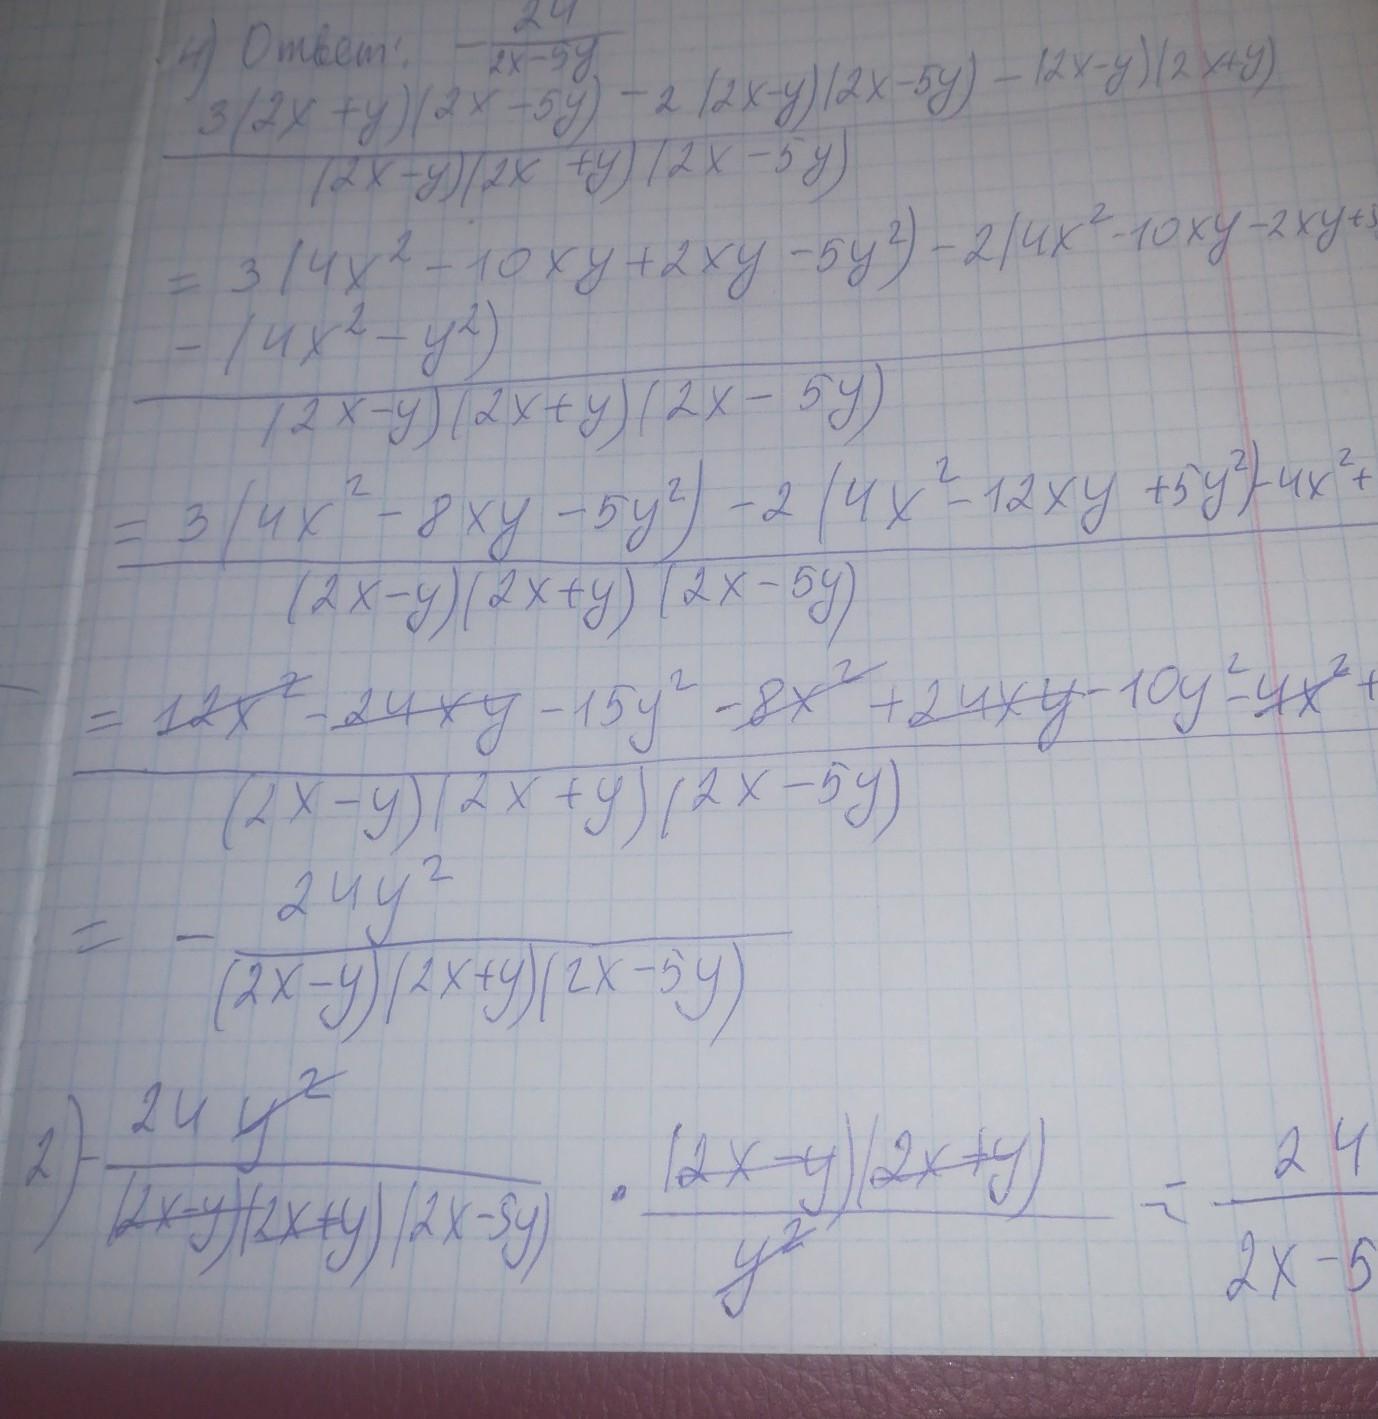 4) Ответ: - 24/(2x-5y)
3(2x+y)(2x-5y) - 2(2x-y)(2x-5y) - (2x-y)(2x+y)
(2x-y)(2x+y)(2x-5y)
= 3(4x² - 10xy + 2xy - 5y²) - 2(4x² - 10xy - 2xy + 5
- (4x² - y²)
(2x-y)(2x+y)(2x - 5y)
= 3(4x² - 8xy - 5y²) - 2(4x² - 12xy + 5y²) - 4x² +
(2x-y)(2x+y)(2x-5y)
= 12x² - 24xy - 15y² - 8x² + 24xy - 10y² - 4x² +
(2x-y)(2x+y)(2x-5y)
= - 24y²
(2x-y)(2x+y)(2x-5y)
2) - 24y²/((2x-y)(2x+y)(2x-5y)) · (2x-y)(2x+y)/y² = 24/(2x-5